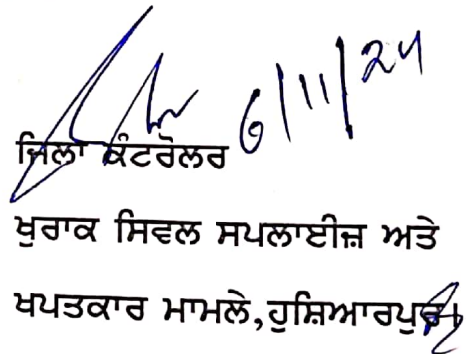 6/11/24
ਜਿਲਾ ਕੰਟਰੋਲਰ
ਖੁਰਾਕ ਸਿਵਲ ਸਪਲਾਈਜ਼ ਅਤੇ
ਖਪਤਕਾਰ ਮਾਮਲੇ,ਹੁਸ਼ਿਆਰਪੁਰ।